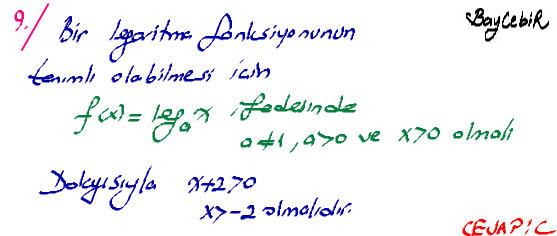 9./ Bir logaritma fonksiyonunun
BayCebiR
tanımlı olabilmesi için
f(x) = logₐx ifadesinde
a≠1, a>0 ve x>0 olmalı
Dolayısıyla x+2>0
x>-2 olmalıdır.
CEVAP: C